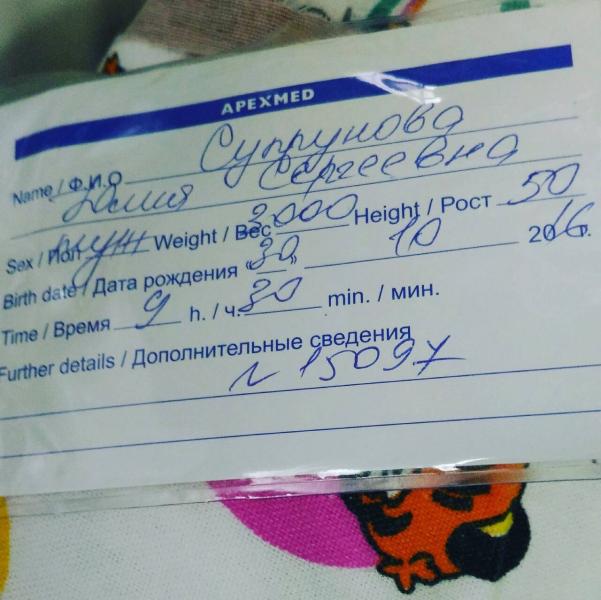 APEXMED
Name / Ф.И.О Супрунова
Юлия Сергеевна
Sex / Пол муж Weight / Вес 3000 Height / Рост 50
Birth date / Дата рождения "30" 10 2016г.
Time / Время 9 h. / ч. 30 min. / мин.
Further details / Дополнительные сведения
N 15097